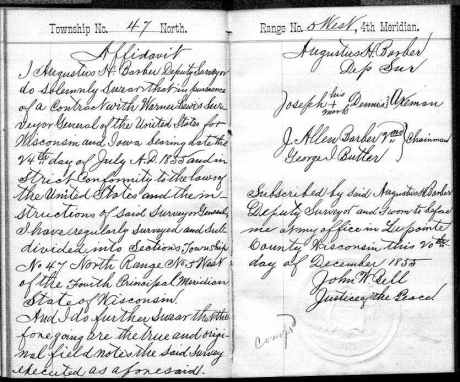 Township No. 47 North.
Affidavit
I Augustus H. Barber Deputy Surveyor
do Solemnly Swear that in pursuance
of a Contract with Warner Lewis Sur-
veyor General of the United States for
Wisconsin and Iowa bearing date the
24th day of July A.D. 1855 and in
Strict Conformity to the laws of
the United States and the in-
structions of said Surveyor General,
I have regularly Surveyed and Sub
divided into Sections Township
No 47 North Range No 5 West
of the Fourth Principal Meridian
State of Wisconsin.
And I do further swear that the
foregoing are the true and origi-
nal field notes the said Survey
executed as aforesaid.
Range No. 5 West, 4th Meridian.
Augustus H. Barber
Dep Sur
Joseph his + mark Dennis } Axeman
J. Allen Barber 2nd
George I Butler } Chainman
Subscribed by said Augustus H Barber
Deputy Surveyor and sworn to before
me at my office in La pointe
County Wisconsin this 20th
day of December 1855
John W Bell
Justice of the Peace